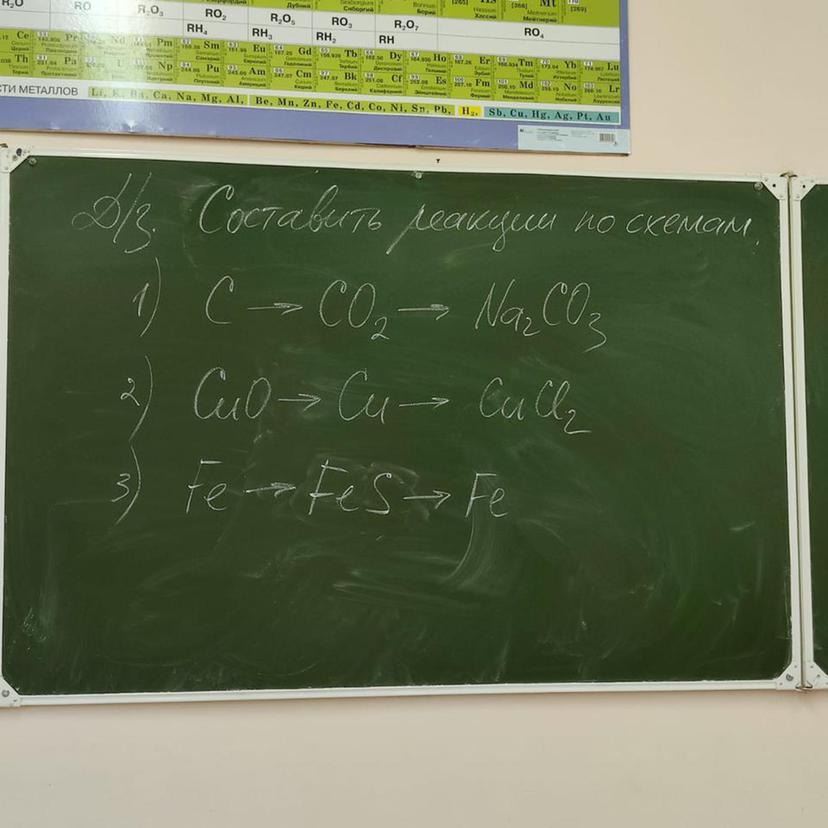 R₂O RO R₂O₃ RO₂ R₂O₅ RO₃ R₂O₇ RO₄
RH₄ RH₃ RH₂ RH
Ce Pr Nd Pm Sm Eu Gd Tb Dy Ho Er Tm Yb Lu
Th Pa U Np Pu Am Cm Bk Cf Es Fm Md No Lr
СТИ МЕТАЛЛОВ Li, K, Ba, Ca, Na, Mg, Al, Be, Mn, Zn, Fe, Cd, Co, Ni, Sn, Pb, H₂, Sb, Cu, Hg, Ag, Pt, Au
Д/з. Составить реакции по схемам.
1) C → CO₂ → Na₂CO₃
2) CuO → Cu → CuCl₂
3) Fe → FeS → Fe